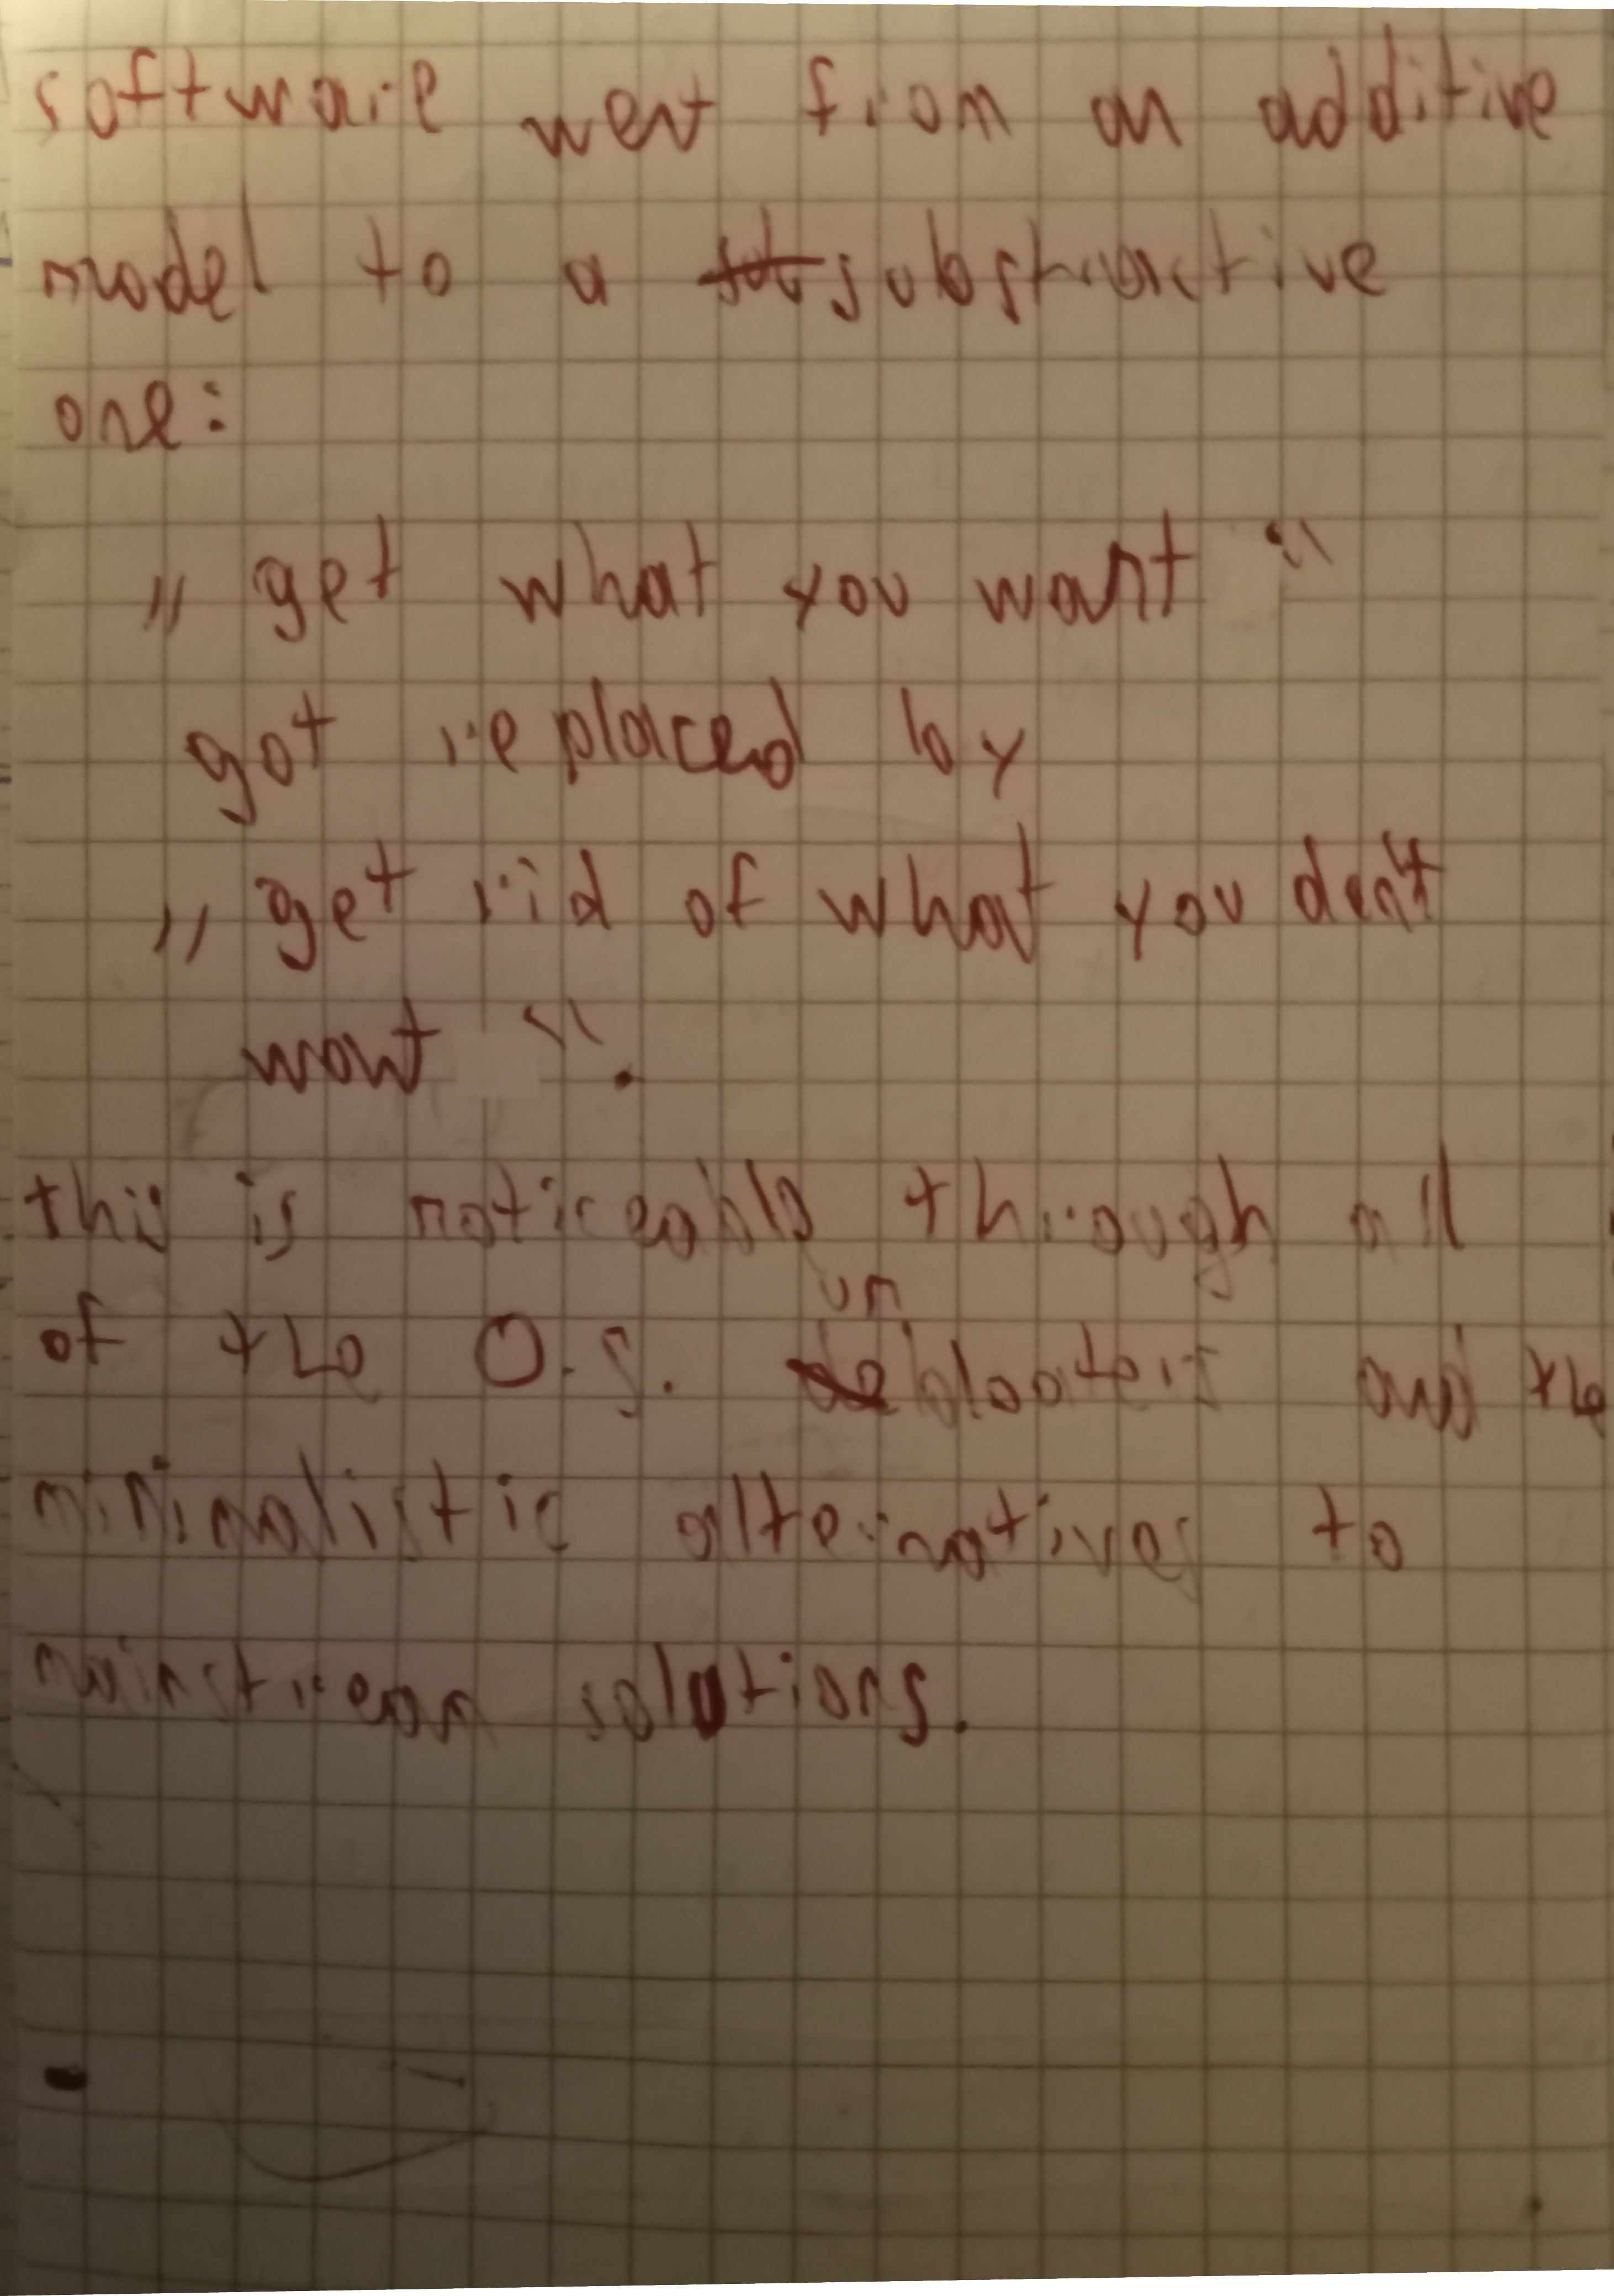 software went from an additive
model to a substractive
one:
„ get what you want “
got replaced by
„ get rid of what you don't
want “.
this is noticeable through all
of the O.S. unbloaters and the
minimalistic alternatives to
mainstream solutions.